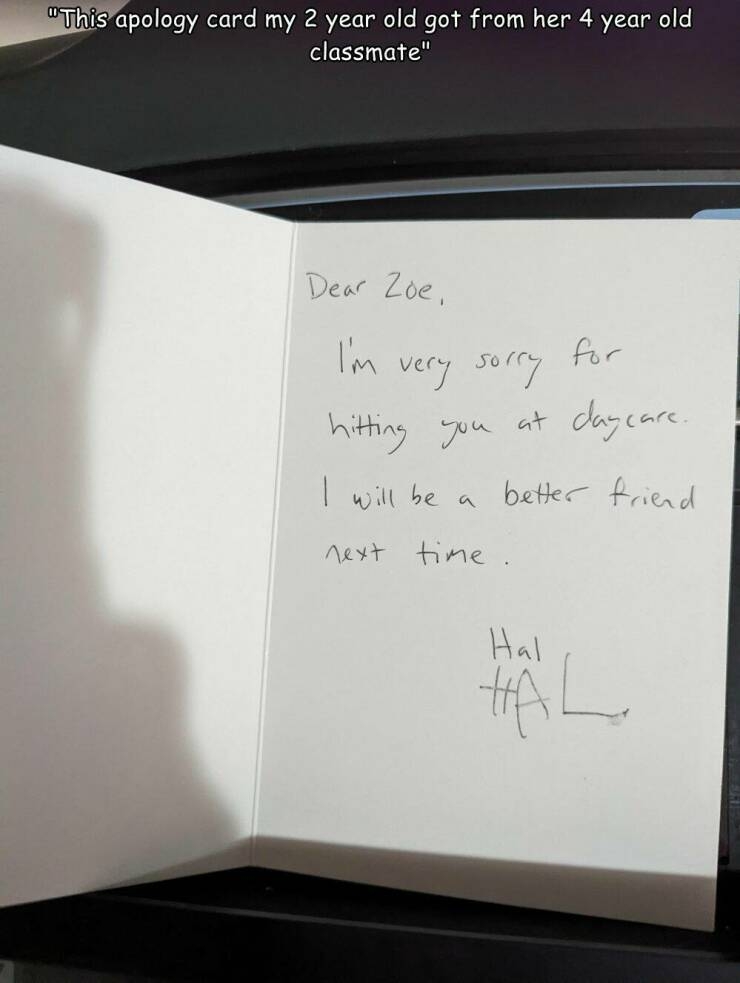 "This apology card my 2 year old got from her 4 year old
classmate"
Dear Zoe,
I'm very sorry for
hitting you at daycare.
I will be a better friend
next time.
Hal
HAL